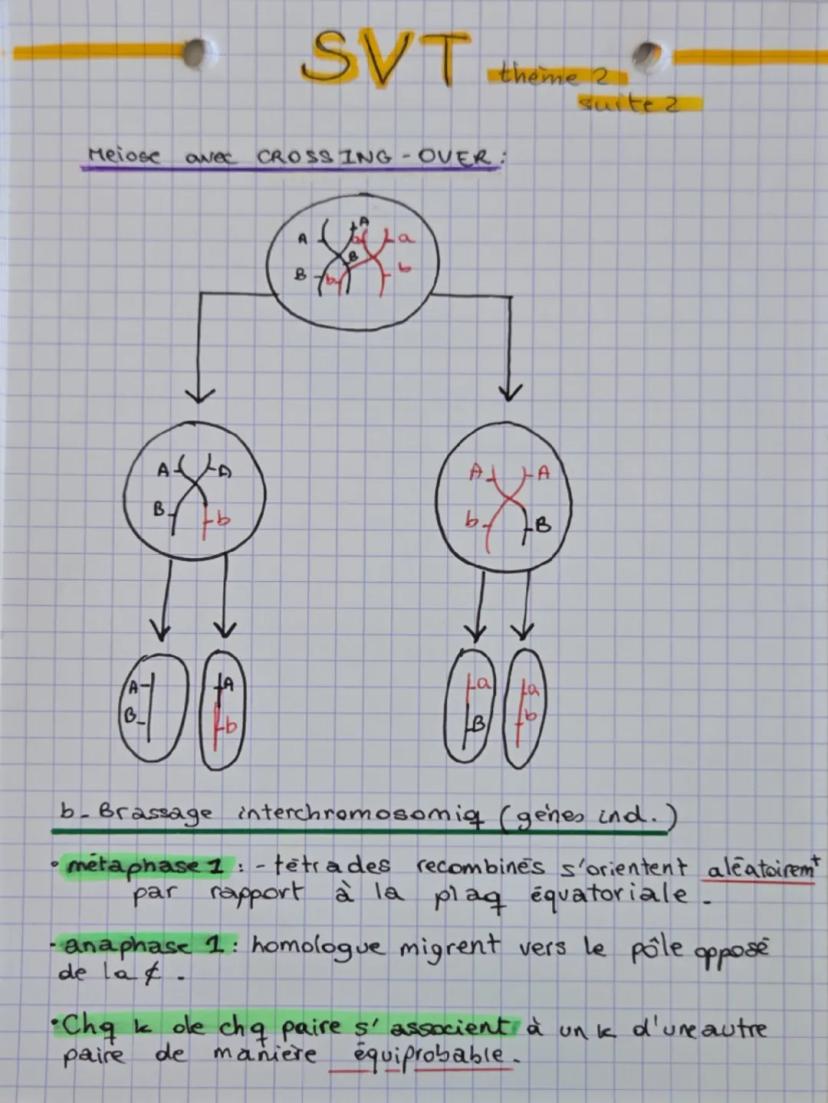 SVT
thème 2
suite 2
Meiose avec CROSSING-OVER :
A A a a
B B b b
A A
B b
A A
b B
A A a a
B b B b
b- Brassage interchromosomiq (gènes ind.)
• métaphase 1 : - tétrades recombinés s'orientent aléatoiremt
par rapport à la plaq équatoriale.
- anaphase 1 : homologue migrent vers le pôle opposé
de la ¢.
• Chq k de chq paire s'associent à un k d'une autre
paire de manière équiprobable.